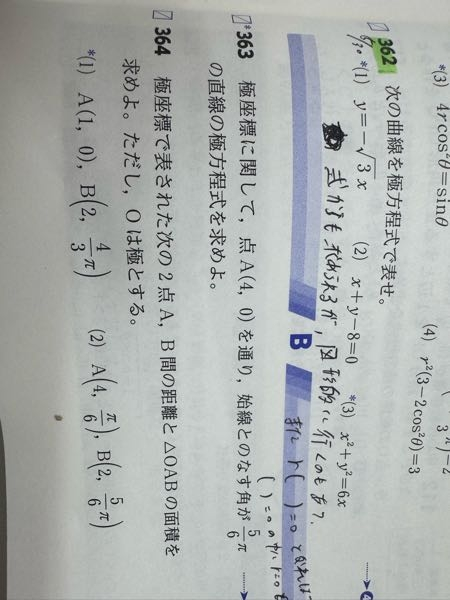 *(3) 4r cos²θ=sinθ
(4) r²(3−2cos²θ)=3
362 次の曲線を極方程式で表せ。
*(1) y=−√3 x (2) x+y−8=0 *(3) x²+y²=6x
式からも求められるが、図形的に行くのもあり。
B
また r( )=0 となれば
( )=0の中に r=0 も
*363 極座標に関して，点 A(4, 0) を通り，始線とのなす角が 5/6 π
の直線の極方程式を求めよ。
364 極座標で表された次の2点 A，B 間の距離と△OABの面積を
求めよ。ただし，O は極とする。
*(1) A(1, 0), B(2, 4/3 π) (2) A(4, π/6), B(2, 5/6 π)